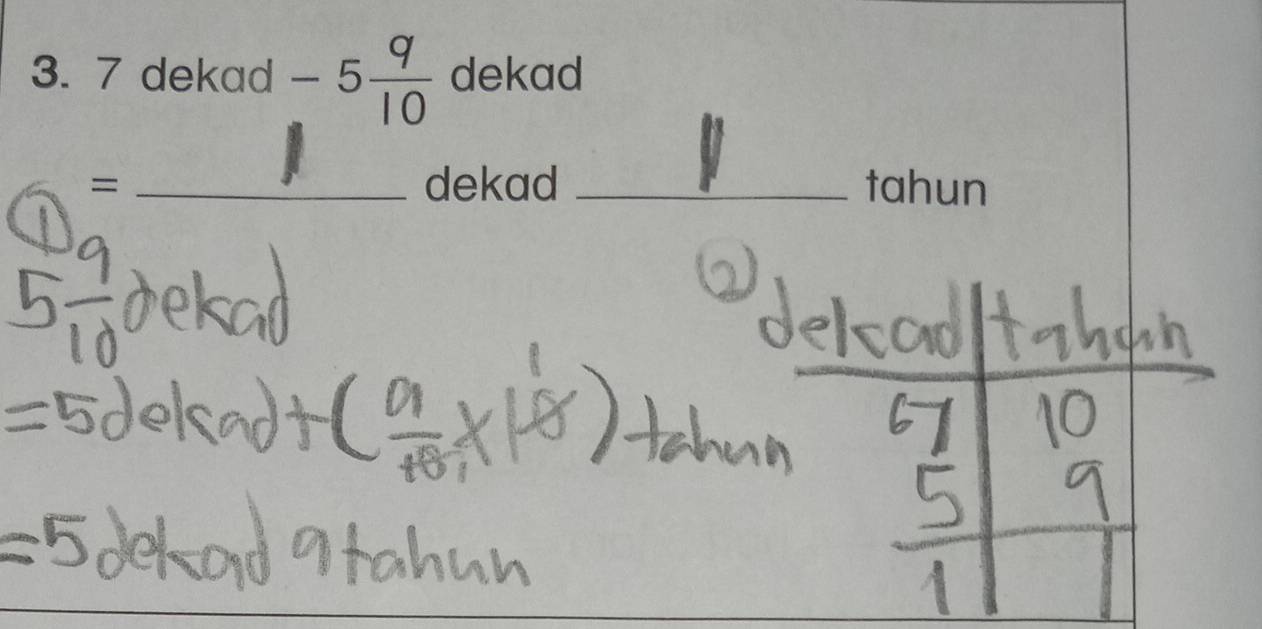 3. 7 dekad – 5 9/10 dekad
= 1 dekad 1 tahun
① 5 9/10 dekad
= 5 dekad + ( 9/10 1 × 10 1 ) tahun
= 5 dekad 9 tahun
② dekad | tahun
6 7 | 10
5 | 9
1 | 1